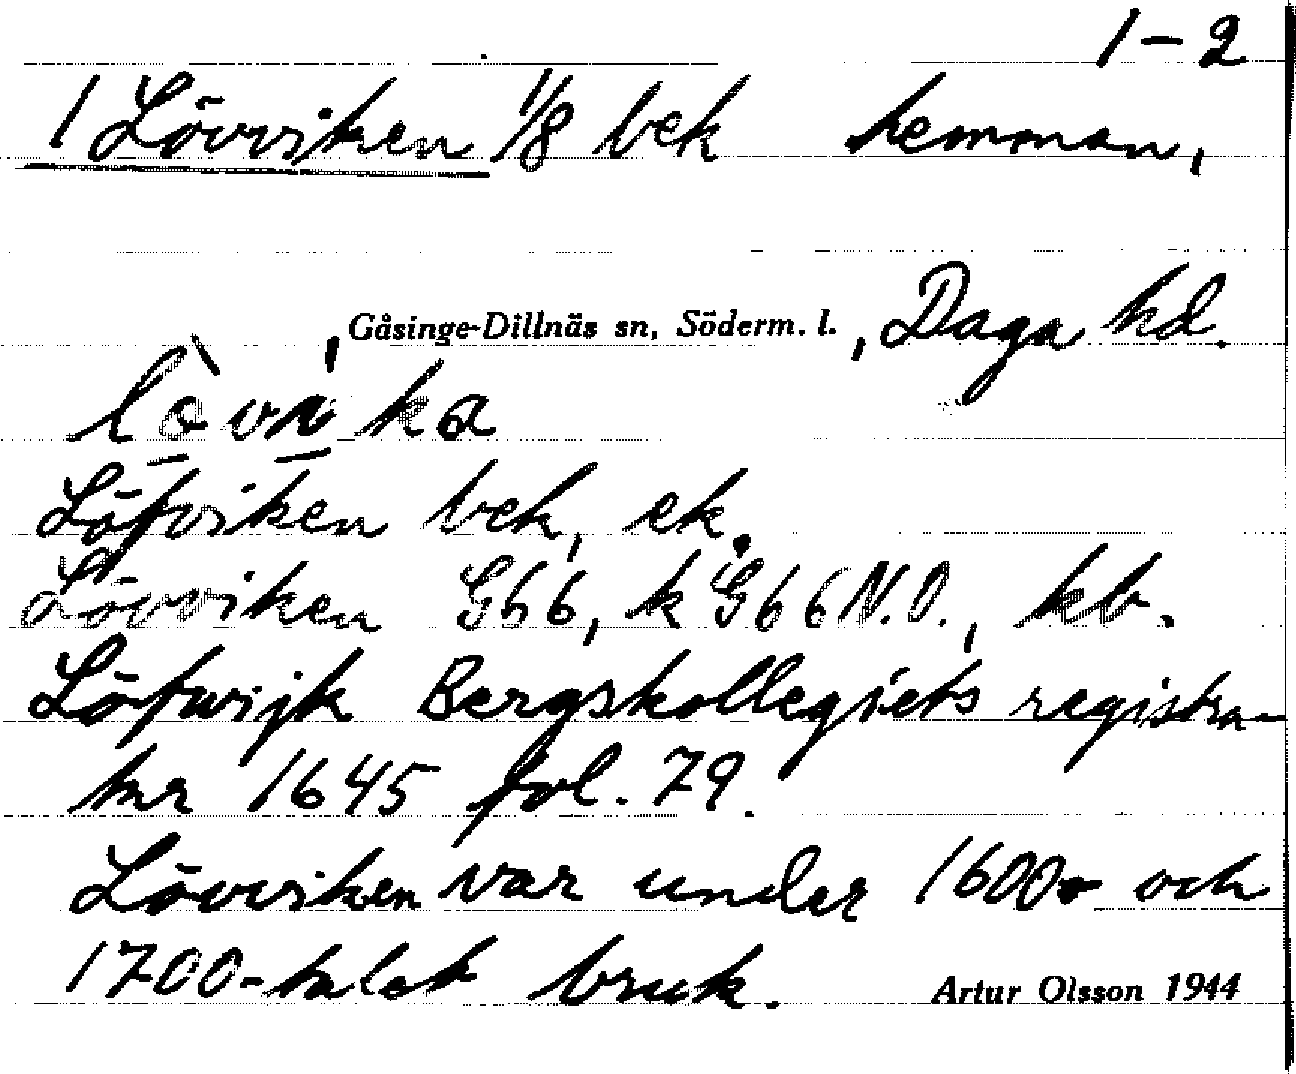 1-2
1 Lövviken 1/8 bek hemman,
, Gåsinge-Dillnäs sn, Söderm. l. , Daga hd.
Löfviken bek, ek.
Lövviken G66, k G66 N.O., kb.
Löfwijk Bergskollegiets registra-
tur 1645 fol. 79.
Lövviken var under 1600- och
1700-talet bruk.
Artur Olsson 1944